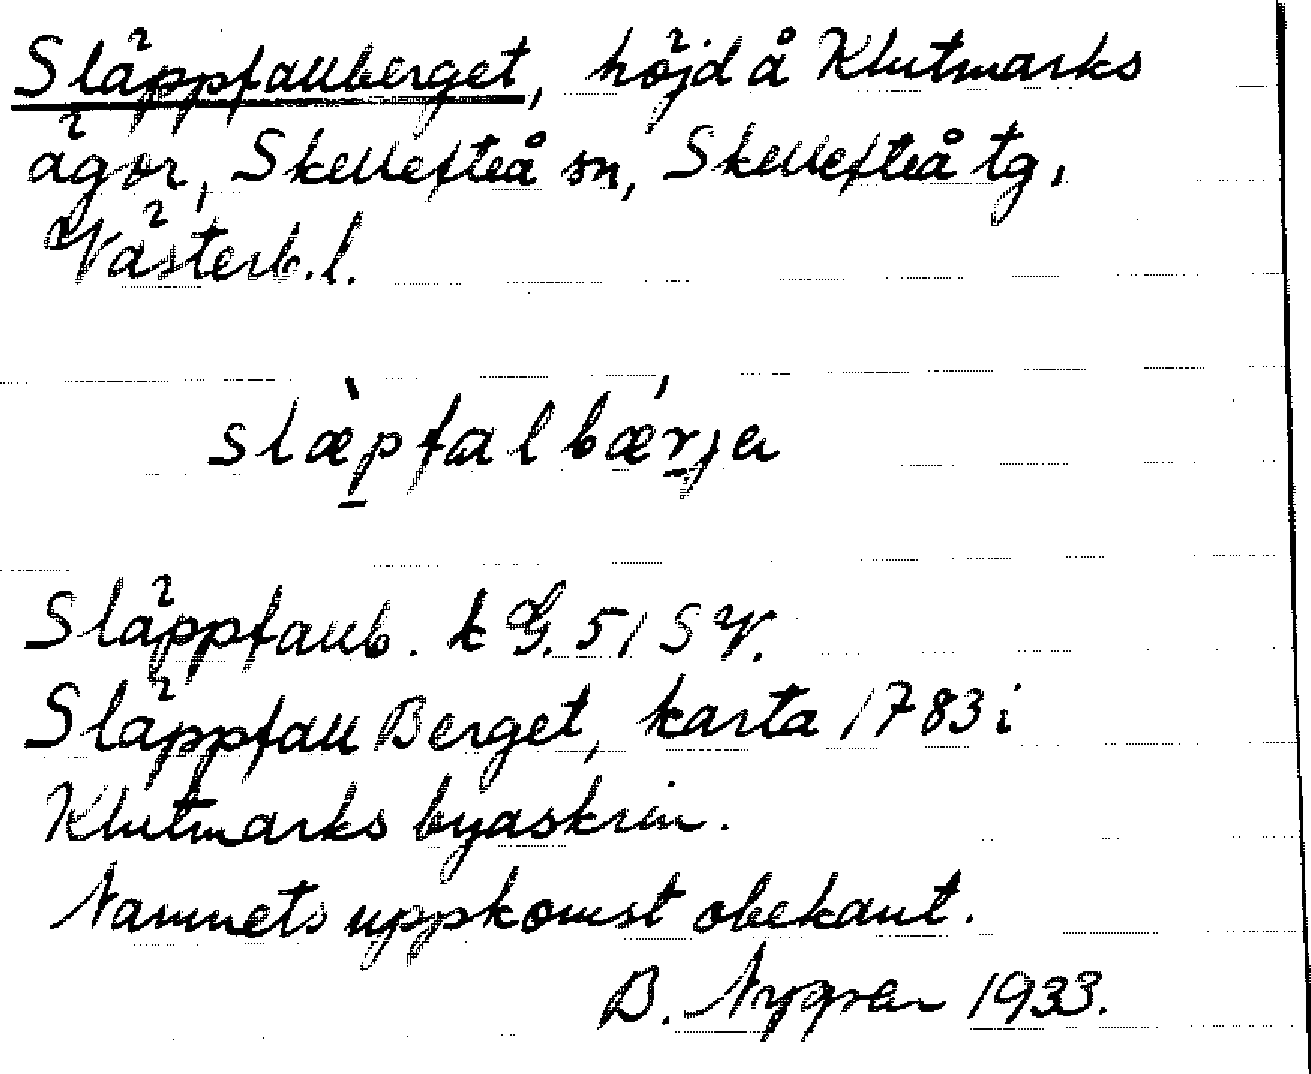 Släppfallberget, höjd å Klutmarks
ägor, Skellefteå sn, Skellefteå tg,
Västerb.l.
slæ̀p̱falbǽṟja
Släppfallb. k G. 51 SV.
Släppfall Berget, karta 1783 i
Klutmarks byaskrin.
Namnets uppkomst obekant.
B. Nygren 1933.